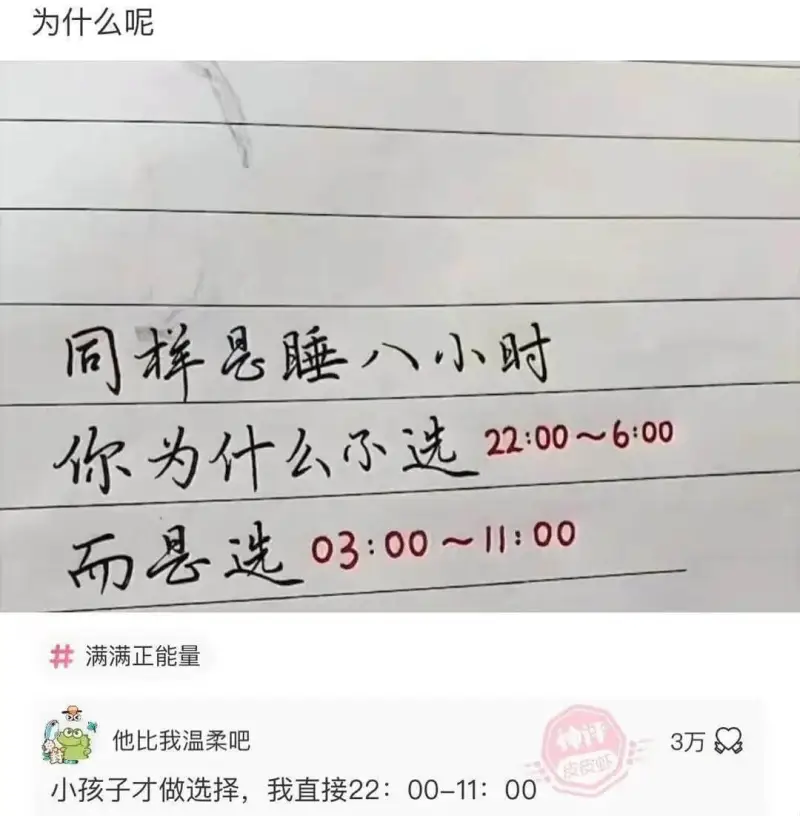 为什么呢
同样是睡八小时
你为什么不选 22:00～6:00
而是选 03:00～11:00
# 满满正能量
他比我温柔吧
神评
皮皮虾
3万
小孩子才做选择，我直接22：00-11：00